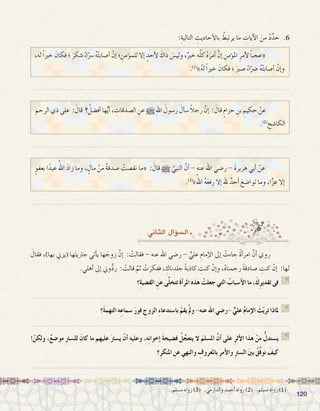 6. حدِّدْ منَ الآياتِ ما يرتبطُ بالأحاديثِ التاليةِ:
«عجباً لأمرِ المؤمنِ إنَّ أمرَهُ كلَّه خيرٌ، وليسَ ذاكَ لأحدٍ إلا للمؤمنِ؛ إنْ أصابتْهُ سرَّاءُ شكرَ؛ فكانَ خيراً لهُ،
وإنْ أصابتْهُ ضرَّاءُ صبرَ؛ فكانَ خيراً لهُ»(1).
عنْ حكيمِ بنِ حزامٍ قالَ: إنَّ رجلاً سألَ رسولَ اللهِ ﷺ عنِ الصدقاتِ، أيُّها أفضلُ؟ قالَ: على ذي الرحمِ
الكاشحِ(2).
عنْ أبي هريرةَ – رضي الله عنه – أنَّ النبيَّ ﷺ قالَ: «ما نقصتْ صدقةٌ منْ مالٍ، وما زادَ اللهُ عبداً بعفوٍ
إلا عزًّا، وما تواضعَ أحدٌ للهِ إلا رفعَهُ اللهُ»(3).
السؤال الثاني
روي أنَّ امرأةً جاءتْ إلى الإمامِ عليٍّ – رضي الله عنه – فقالتْ: إنَّ زوجَها يأتي جاريتَها (يزني بها)، فقالَ
لها: إنْ كنتِ صادقةً رجمناهُ، وإنْ كنتِ كاذبةً جلدناكِ، ففكرَتْ ثمَّ قالتْ: ردُّوني إلى أهلي.
في تقديرِكَ، ما الأسبابُ التي جعلتْ هذهِ المرأةَ تتخلَّى عنِ القضيةِ؟
لماذا تريَّثَ الإمامُ عليٌّ –رضي الله عنه– ولمْ يقمْ باستدعاءِ الزوجِ فورَ سماعِهِ التهمةَ؟
يستدلُّ منْ هذا الأثرِ على أنَّ المسلمَ لا يتعجَّلُ فضيحةَ إخوانِه، وعليهِ أنْ يسترَ عليهم ما كانَ للسترِ موضعٌ، ولكنْ!
كيفَ نوفِّقُ بينَ السترِ والأمرِ بالمعروفِ والنهيِ عنِ المنكرِ؟
(1) رواه مسلم. (2) رواه أحمد والدارمي. (3) رواه مسلم.
120